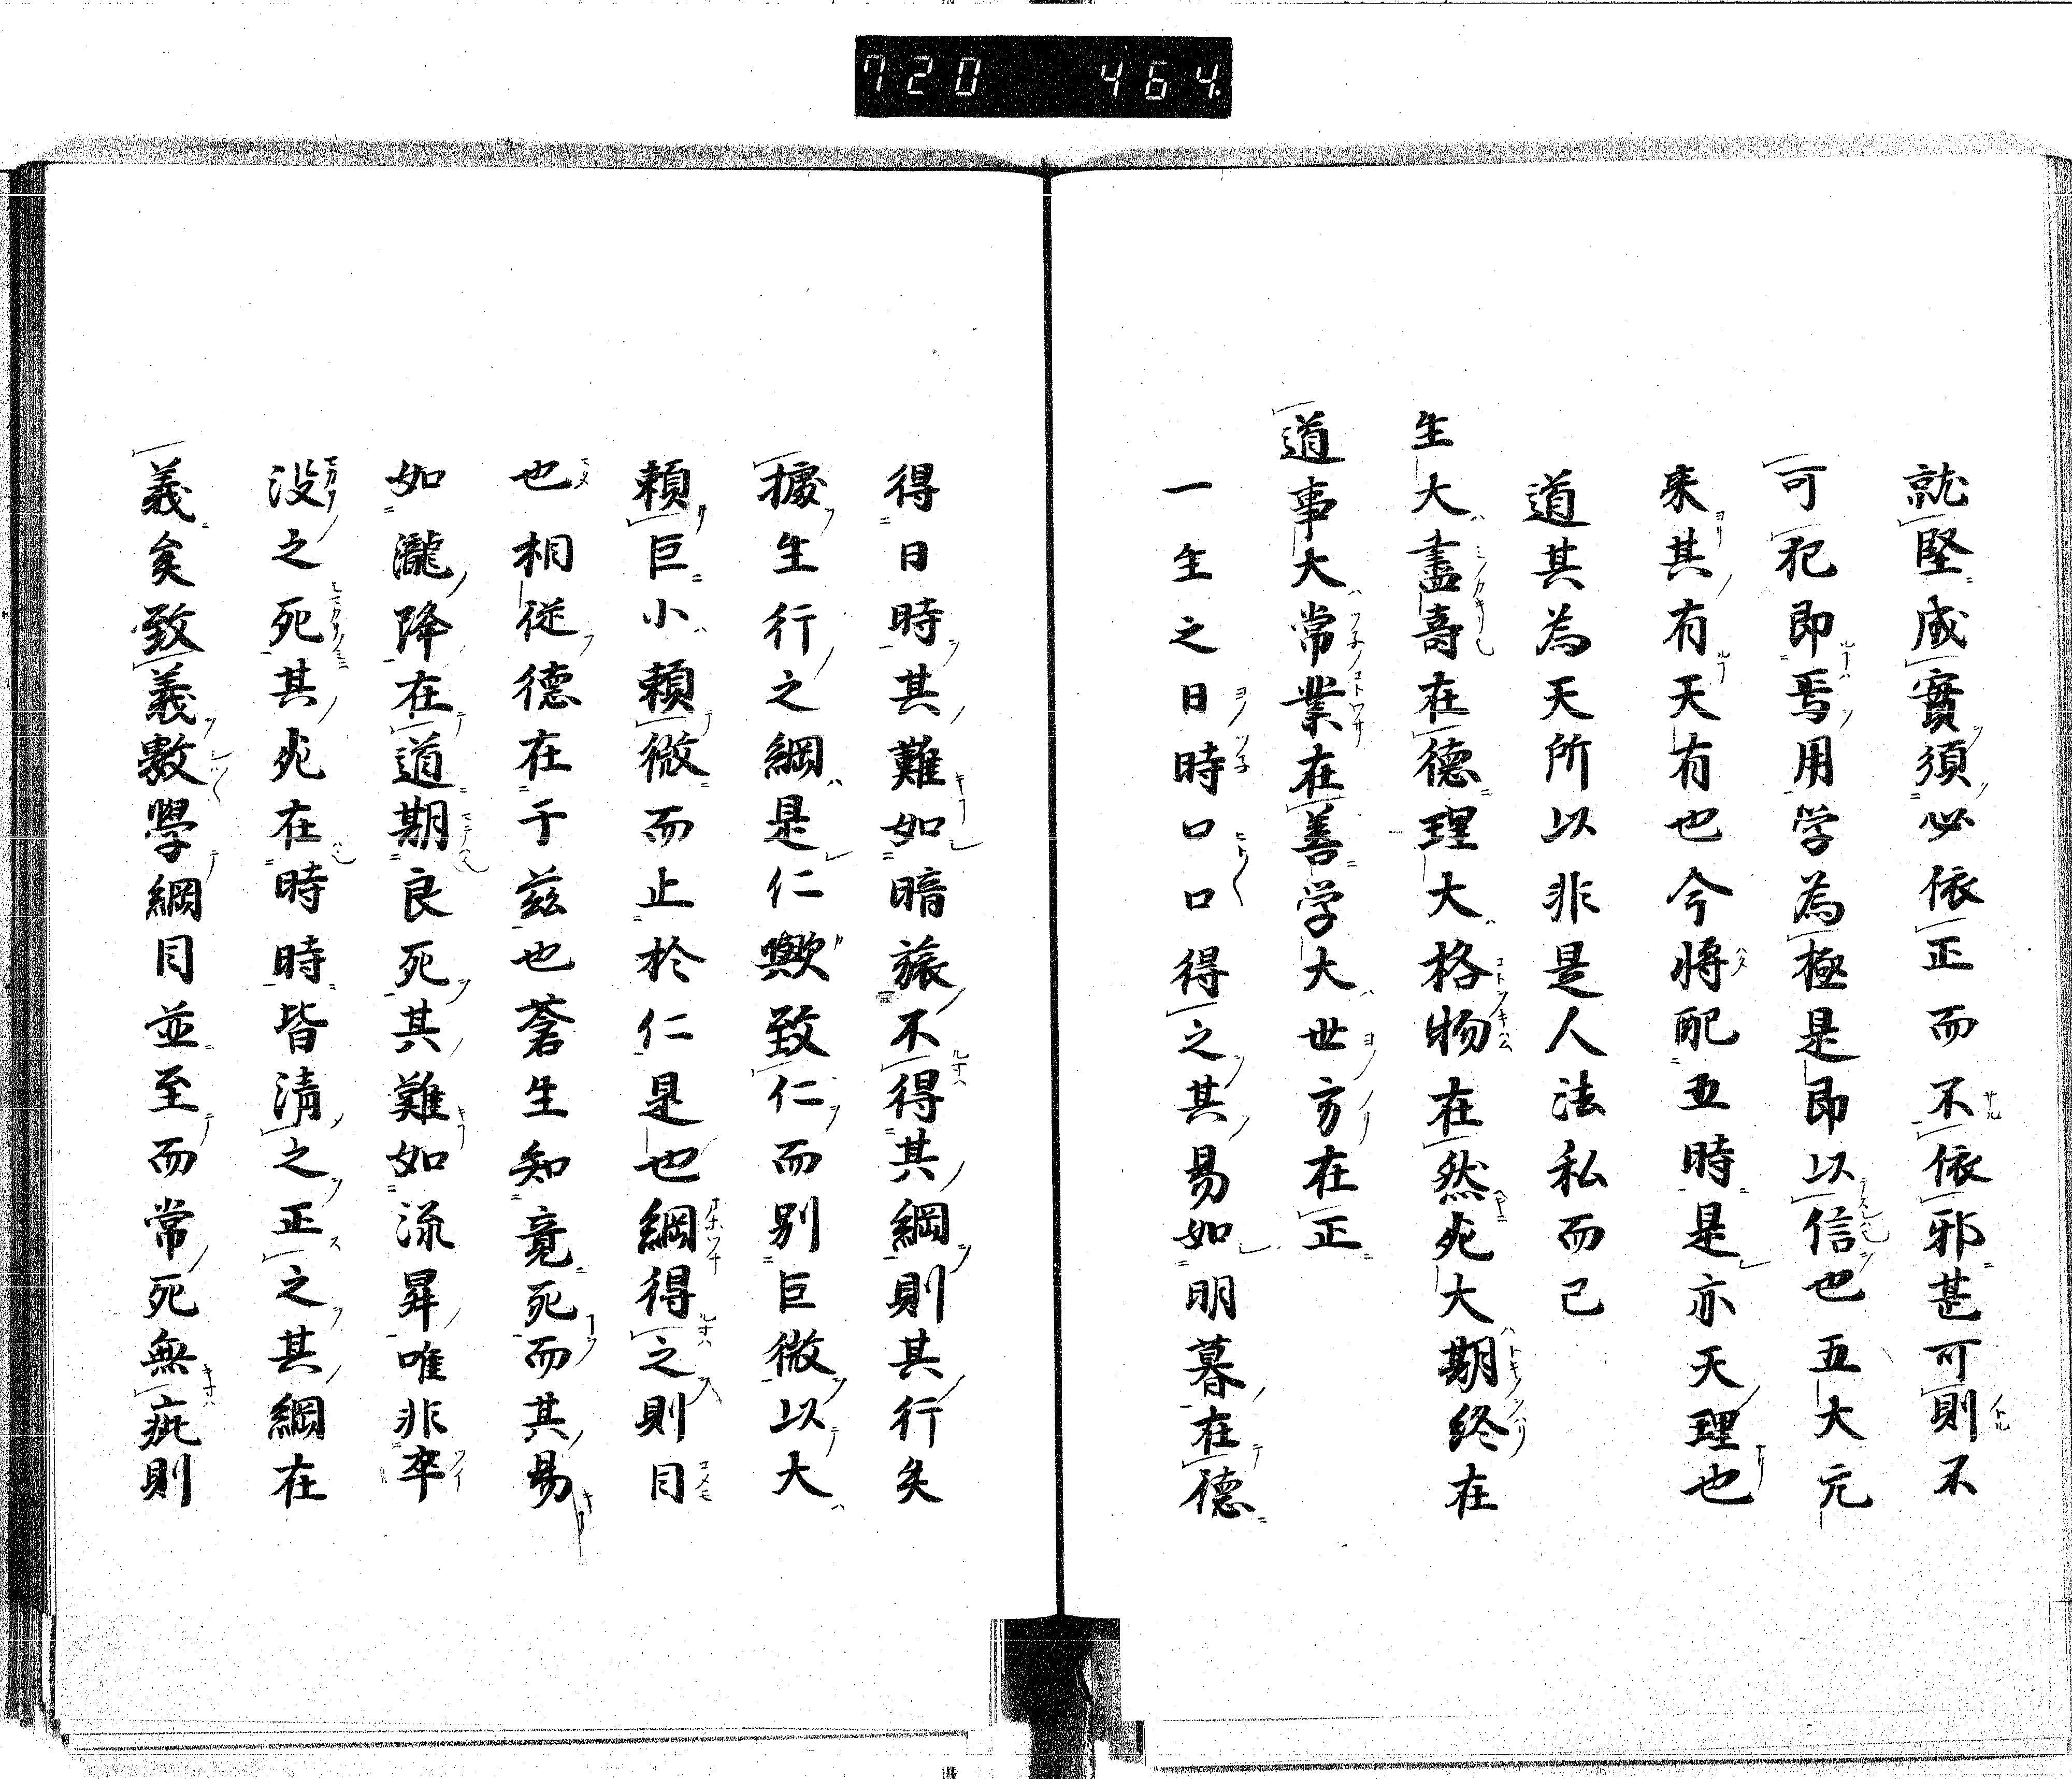 720 464
就堅成實須必依正而不依邪甚可則不
可犯即焉用学為極是即以信也五大元
来其有天有也今將配五時是亦天理也
道其為天所以非是人法私而已
生大盡壽在德理大格物在然死大期終在
道事大常業在善学大世方在正
一生之日時口口得之其易如明暮在德
得日時其難如暗旅不得其綱則其行矣
據生行之綱是仁歟致仁而別巨微以大
賴巨小賴微而止於仁是也綱得之則目
也相従德在于茲也蒼生知竟死而其易
如瀧降在道期良死其難如流昇唯非卒
没之死其死在時時皆清之正之其綱在
義矣致義數學綱目並至而常死無疵則